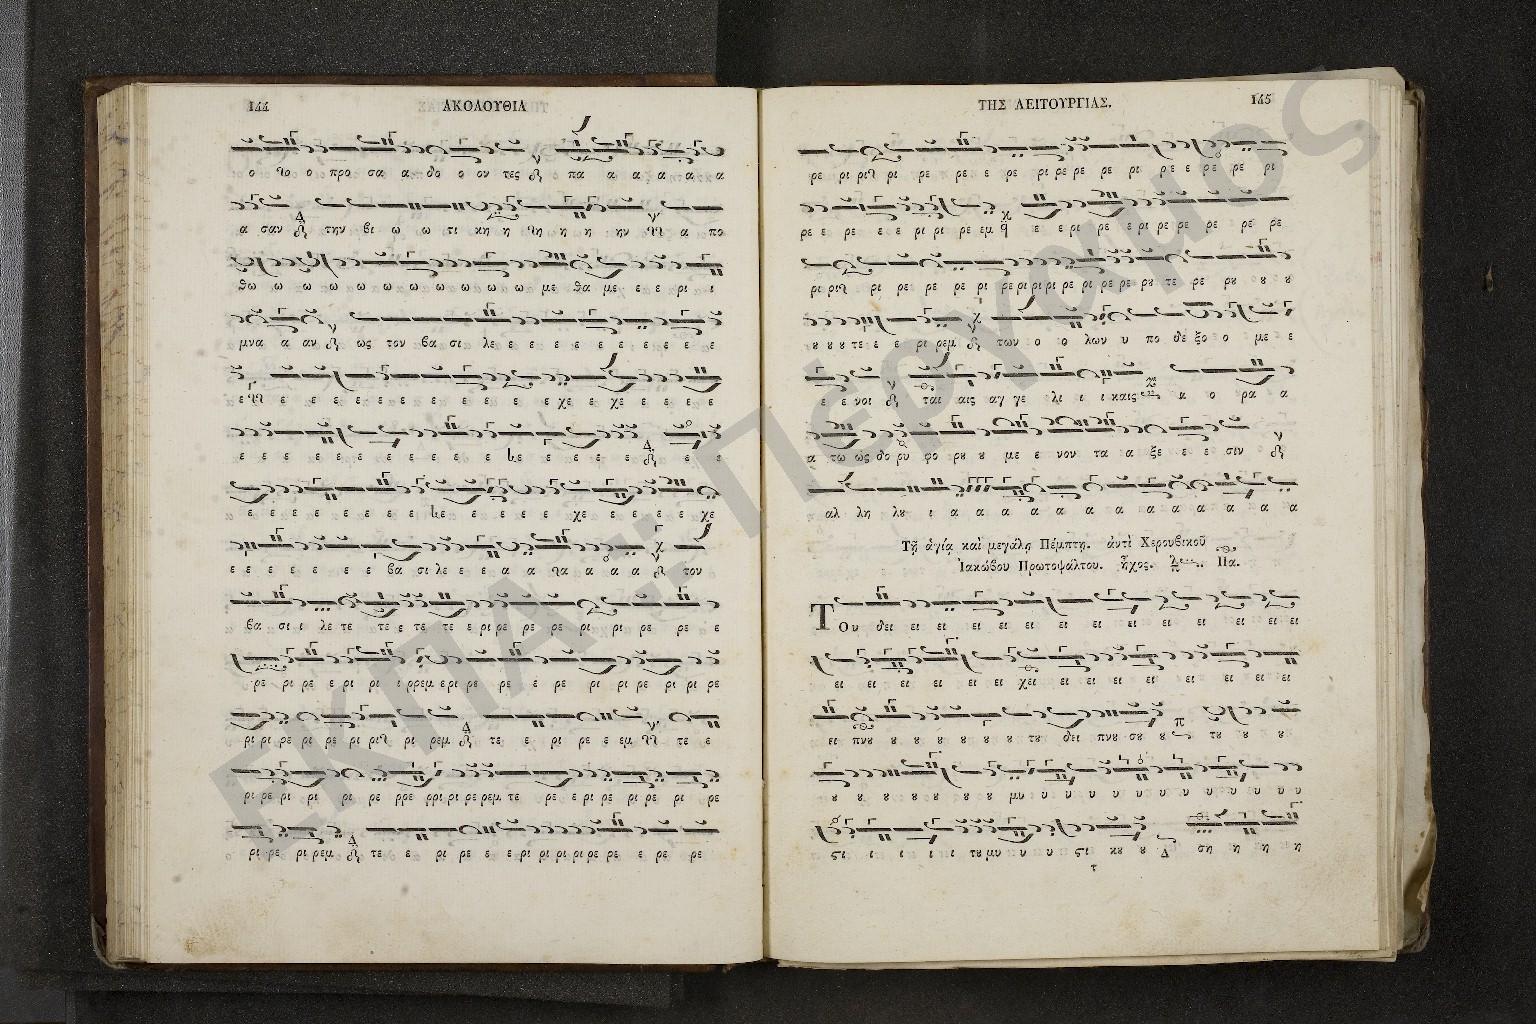 144
ΑΚΟΛΟΥΘΙΑ
ο ϖο ο προ σα α δο ο ον τες πα α α α α α
α σαν την βι ω ω τι κη η ϖη η η ην α πο
θω ω ω ω ω ω ω ω ω ω ω ω με θα με ε ε ρι ι
μνα α αν ως τον βα σι λε ε ε ε ε ε ε ε ε ε
ε ε ε ε ε ε ε ε ε ε ε ε χε ε χε ε ε ε ε
ε ε ε ε ε ε ε ε ε ε ε ε ε ε ε ε ε ε
ε ε ε ε ε ε ε ε ε ε ε ε ε χε ε ε ε ε χε
ε ε ε ε ε ε ε βα σι λε ε α α α α α α τον
βα σι ι λε τε τε ε τε τε ε ρι ρε ρε ρε ρι ρι ρε ρε ε
ρε ρι ρε ε ρι ρι ι ρρεμ ε ρι ρε ρε ε ρε ρι ρι ρε ρι ρι ρε
ρι ρι ρε ρι ρε ρι ρι ρι ρεμ τε ε ρι ρε ε εμ τε ε
ρι ρε ρι ρι ρι ρε ρρε ρρι ρι ρε ρεμ τε ρε ε ρι ρε ρι ρε ρι ρε
ρι ρε ρι ρεμ τε ε ρι ρε ε ε ρι ρι ρι ρι ρε ρε ε ρε ρε
ΤΗΣ ΛΕΙΤΟΥΡΓΙΑΣ.
145
ρε ρι ρι ρι ρε ρε ε ρε ρι ρε ρε ρε ρι ρ ε ε ρε ρε ρι
ρε ε ρε ε ε ρι ρι ρε εμ ε ε ρι ρε ε ρι ρε ρε ρε ρε ρε
ρι ρι ρι ρε ρε ρε ρι ρε ρι ρι ρι ρε ρι ρε ρε ρȣ τε ρε ρȣ ȣ ȣ
ȣ ȣ ȣ τε ε ε ρι ρεμ των ο ο λων υ πο δε ξο ο με ε
ε ε νοι ται αις αγ γε λι ι ι καις α ο ρα α
α τω ως δο ρυ φο ρȣ ȣ με ε νον τα α ξε ε ε σιν
αλ λη λȣ ι α α α α α α α α α α α α α α
Τῇ ἁγίᾳ καὶ μεγάλῃ Πέμπτῃ. ἀντὶ Χερουβικοῦ
Ἰακώβου Πρωτοψάλτου. ἦχος. Πα.
Του δει ει ει ει ει ει ει ει ει ει ει ει ει
ει ει ει ει ει ει χει ει ει ει ει ει ει ει ει
ει πνȣ ȣ ȣ ȣ ȣ ȣ ȣ τȣ δει πνȣ σȣ ȣ τȣ ȣ ȣ
ȣ ȣ ȣ ȣ ȣ ȣ ȣ μυ υ υ υ υ υ υ υ υ υ υ υ
ϛι ι ι ι ι ι τȣ μυ υ υ υ ϛι κȣ ȣ ση η η η
τ
ΕΚΠΑ / Πέργαμος